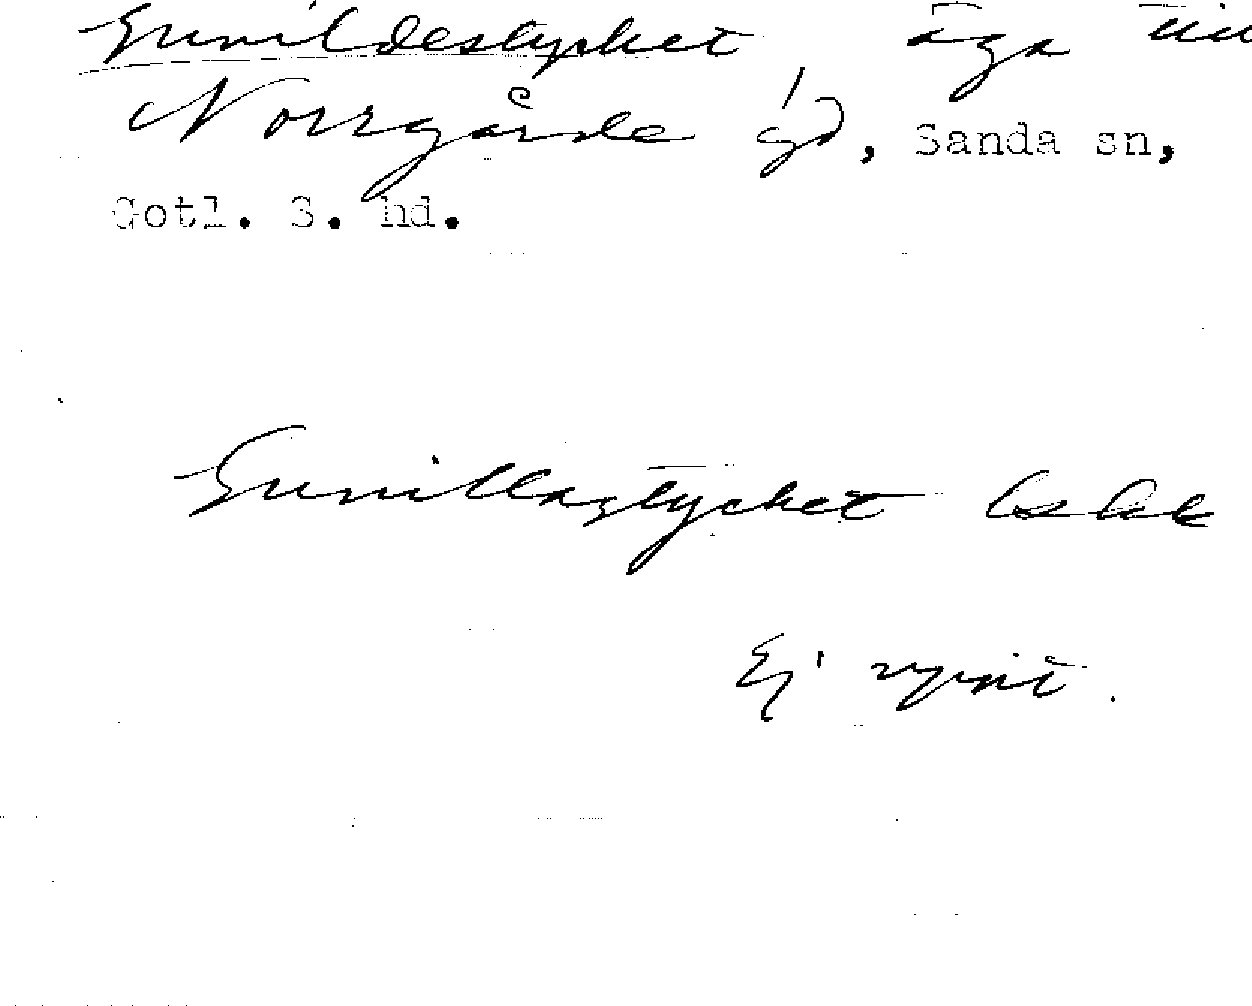 Gunildestycket äga till
Norrgårde gd, Sanda sn,
Gotl. S. hd.
Gunillastycket
Ej synt.